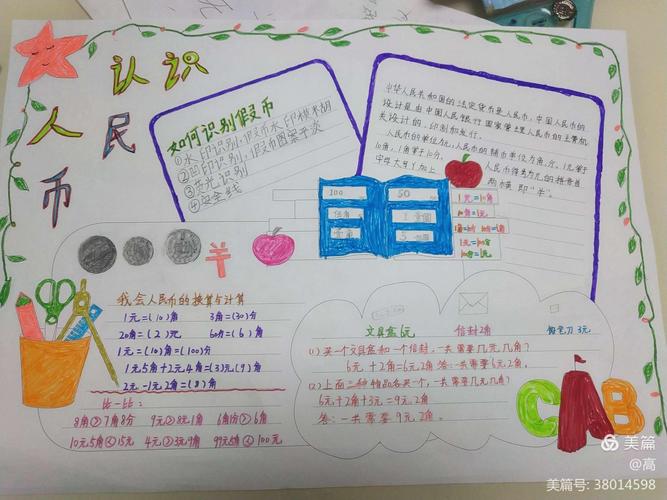 认识
人民
币
如何识别假币
①水印识别,假币水印模糊
②凹印识别,假币图案平淡
③荧光识别
④安全线
中华人民共和国的法定货币是人民币,中国人民币的
设计是由中国人民银行国家管理人民币的主管机
关设计的,印制和发行。
人民币的单位为元,人民币的辅币单位为角,分,1元等于
10角,1角等于10分。
人民币符号为元的拼音首
字母大写Y加上
两横 即"¥"。
100
50
1元=10角
10角=1元
1元=100分
100分=1元
羊
我会人民币的换算与计算
1元=(10)角 3角=(30)分
20角=(2)元 60分=(6)角
1元=(10)角=(100)分
1元5角+2元4角=(3)元(9)角
2元-1元2角=(8)角
比一比:
8角>7角8分 9元>8元1角 6角1分>6角
10元5角<15元 4元>3元9角 99元5角<100元
文具盒6元 信封2角 铅笔刀3元
(1)买一个文具盒和一个信封,一共需要几元几角?
6元+2角=6元2角 答:一共需要6元2角。
(2)上面三种物品各买一个,一共需要几元几角?
6元+2角+3元=9元2角
答:一共需要9元2角。
CAB
美篇
@高
美篇号:38014598